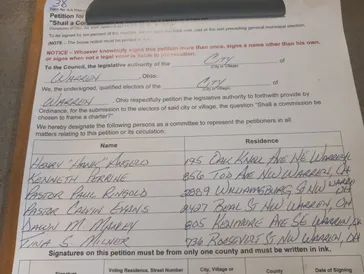 38
Petition for
"Shall a Co
NOTICE - Whoever knowingly signs this petition more than once, signs a name other than his own,
or signs when not a legal voter is liable to prosecution.
To the Council, the legislative authority of the CITY of
WARREN, Ohio:
We, the undersigned, qualified electors of the CITY of
WARREN, Ohio respectfully petition the legislative authority to forthwith provide by
Ordinance, for the submission to the electors of said city or village, the question "Shall a commission be
chosen to frame a charter?"
We hereby designate the following committee as persons to represent the petitioners in all
matters relating to this petition or its circulation:
Name Residence
HENRY "HANK" ANGELO 195 OAK KNOLL AVE NE WARREN,
KENNETH PERRINE 856 TOD AVE NW WARREN, OH
PASTOR PAUL RINGOLD 2889 WILLIAMSBURG ST NW WARREN OH
PASTOR CALVIN EVANS 2427 BEAL ST NW WARREN, OH
805 KENMORE AVE SE WARREN, OH
TINA S. MILNER 736 ROOSEVELT ST NW WARREN, OH
Signatures on this petition must be from only one county and must be written in ink.
Signature Voting Residence, Street Number City, Village or County Date of Signing